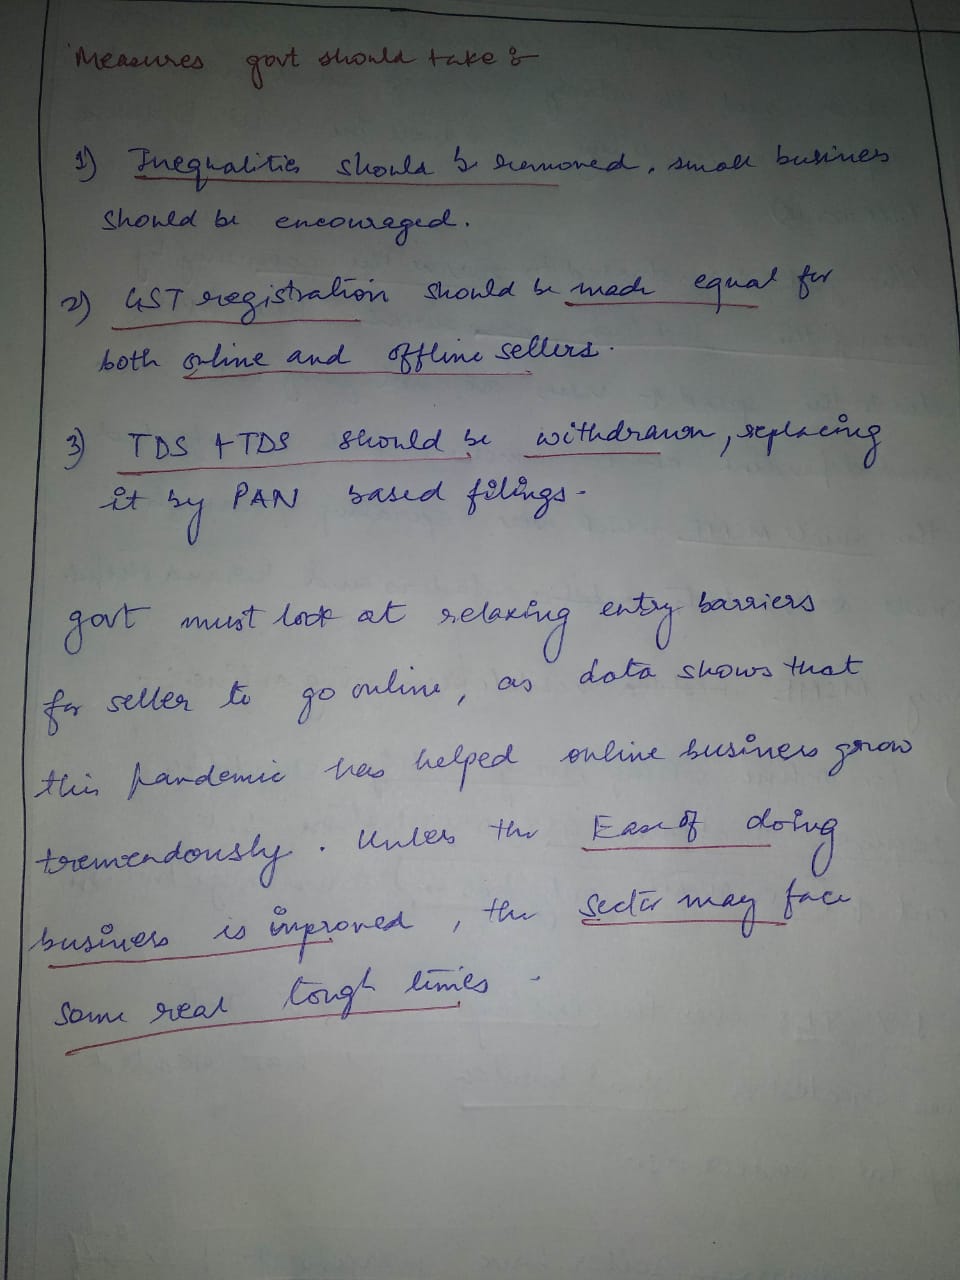 Measures govt should take :-
1) Inequalities should be removed, small business
should be encouraged.
2) GST registration should be made equal for
both online and offline sellers.
3) TDS & TDS should be withdrawn, replacing
it by PAN based filings.
govt must look at relaxing entry barriers
for seller to go online, as data shows that
this pandemic has helped online business grow
tremendously. Unless the Ease of doing
business is improved, the sector may face
some real tough times.